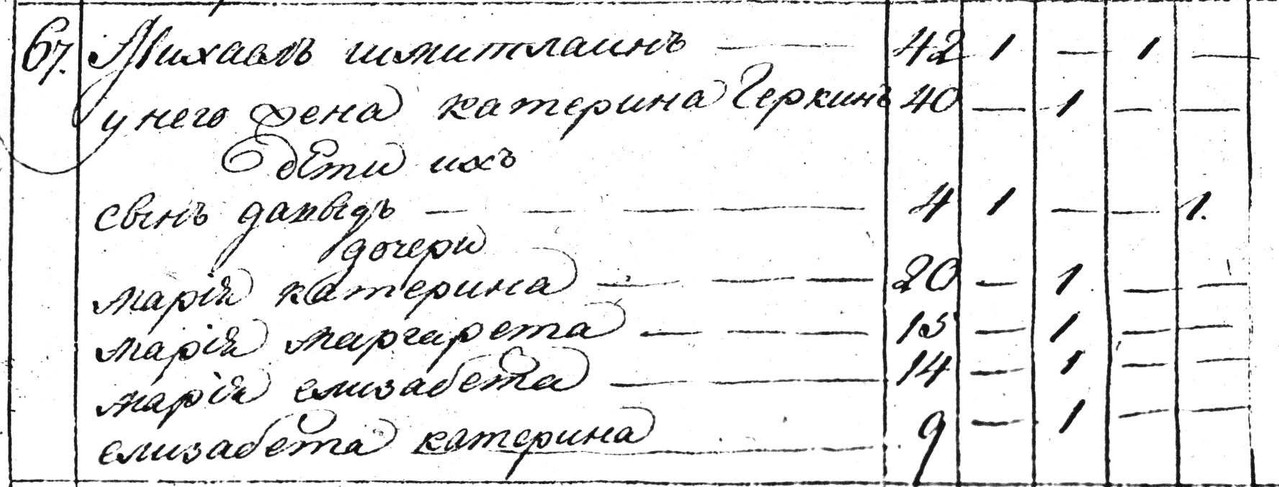 67. Михаэль шмитлаинъ — — 42 1 — 1 —
у него жена катерина Геркинъ 40 — 1 — —
дѣти ихъ
сынъ давыдъ — — — — 4 1 — — 1.
дочери
марія катерина — — — — 20 — 1 — —
марія маргарета — — — — 15 — 1 — —
марія елизабета — — — — 14 — 1 — —
елизабета катерина — — 9 — 1 — —